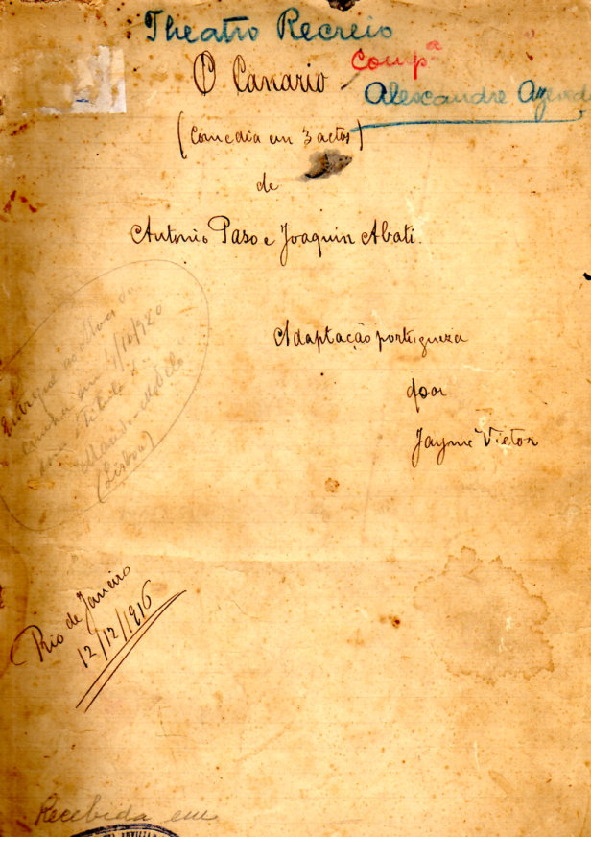 Theatro Recreio
Compª
O Canario
Alexandre Azevedo
(Comedia em 3 actos)
de
Antonio Paso e Joaquin Abati.
Adaptação portugueza
por
Jayme Victor
4/12/920
(Lisboa)
Rio de Janeiro
12/12/1916
Recebida em